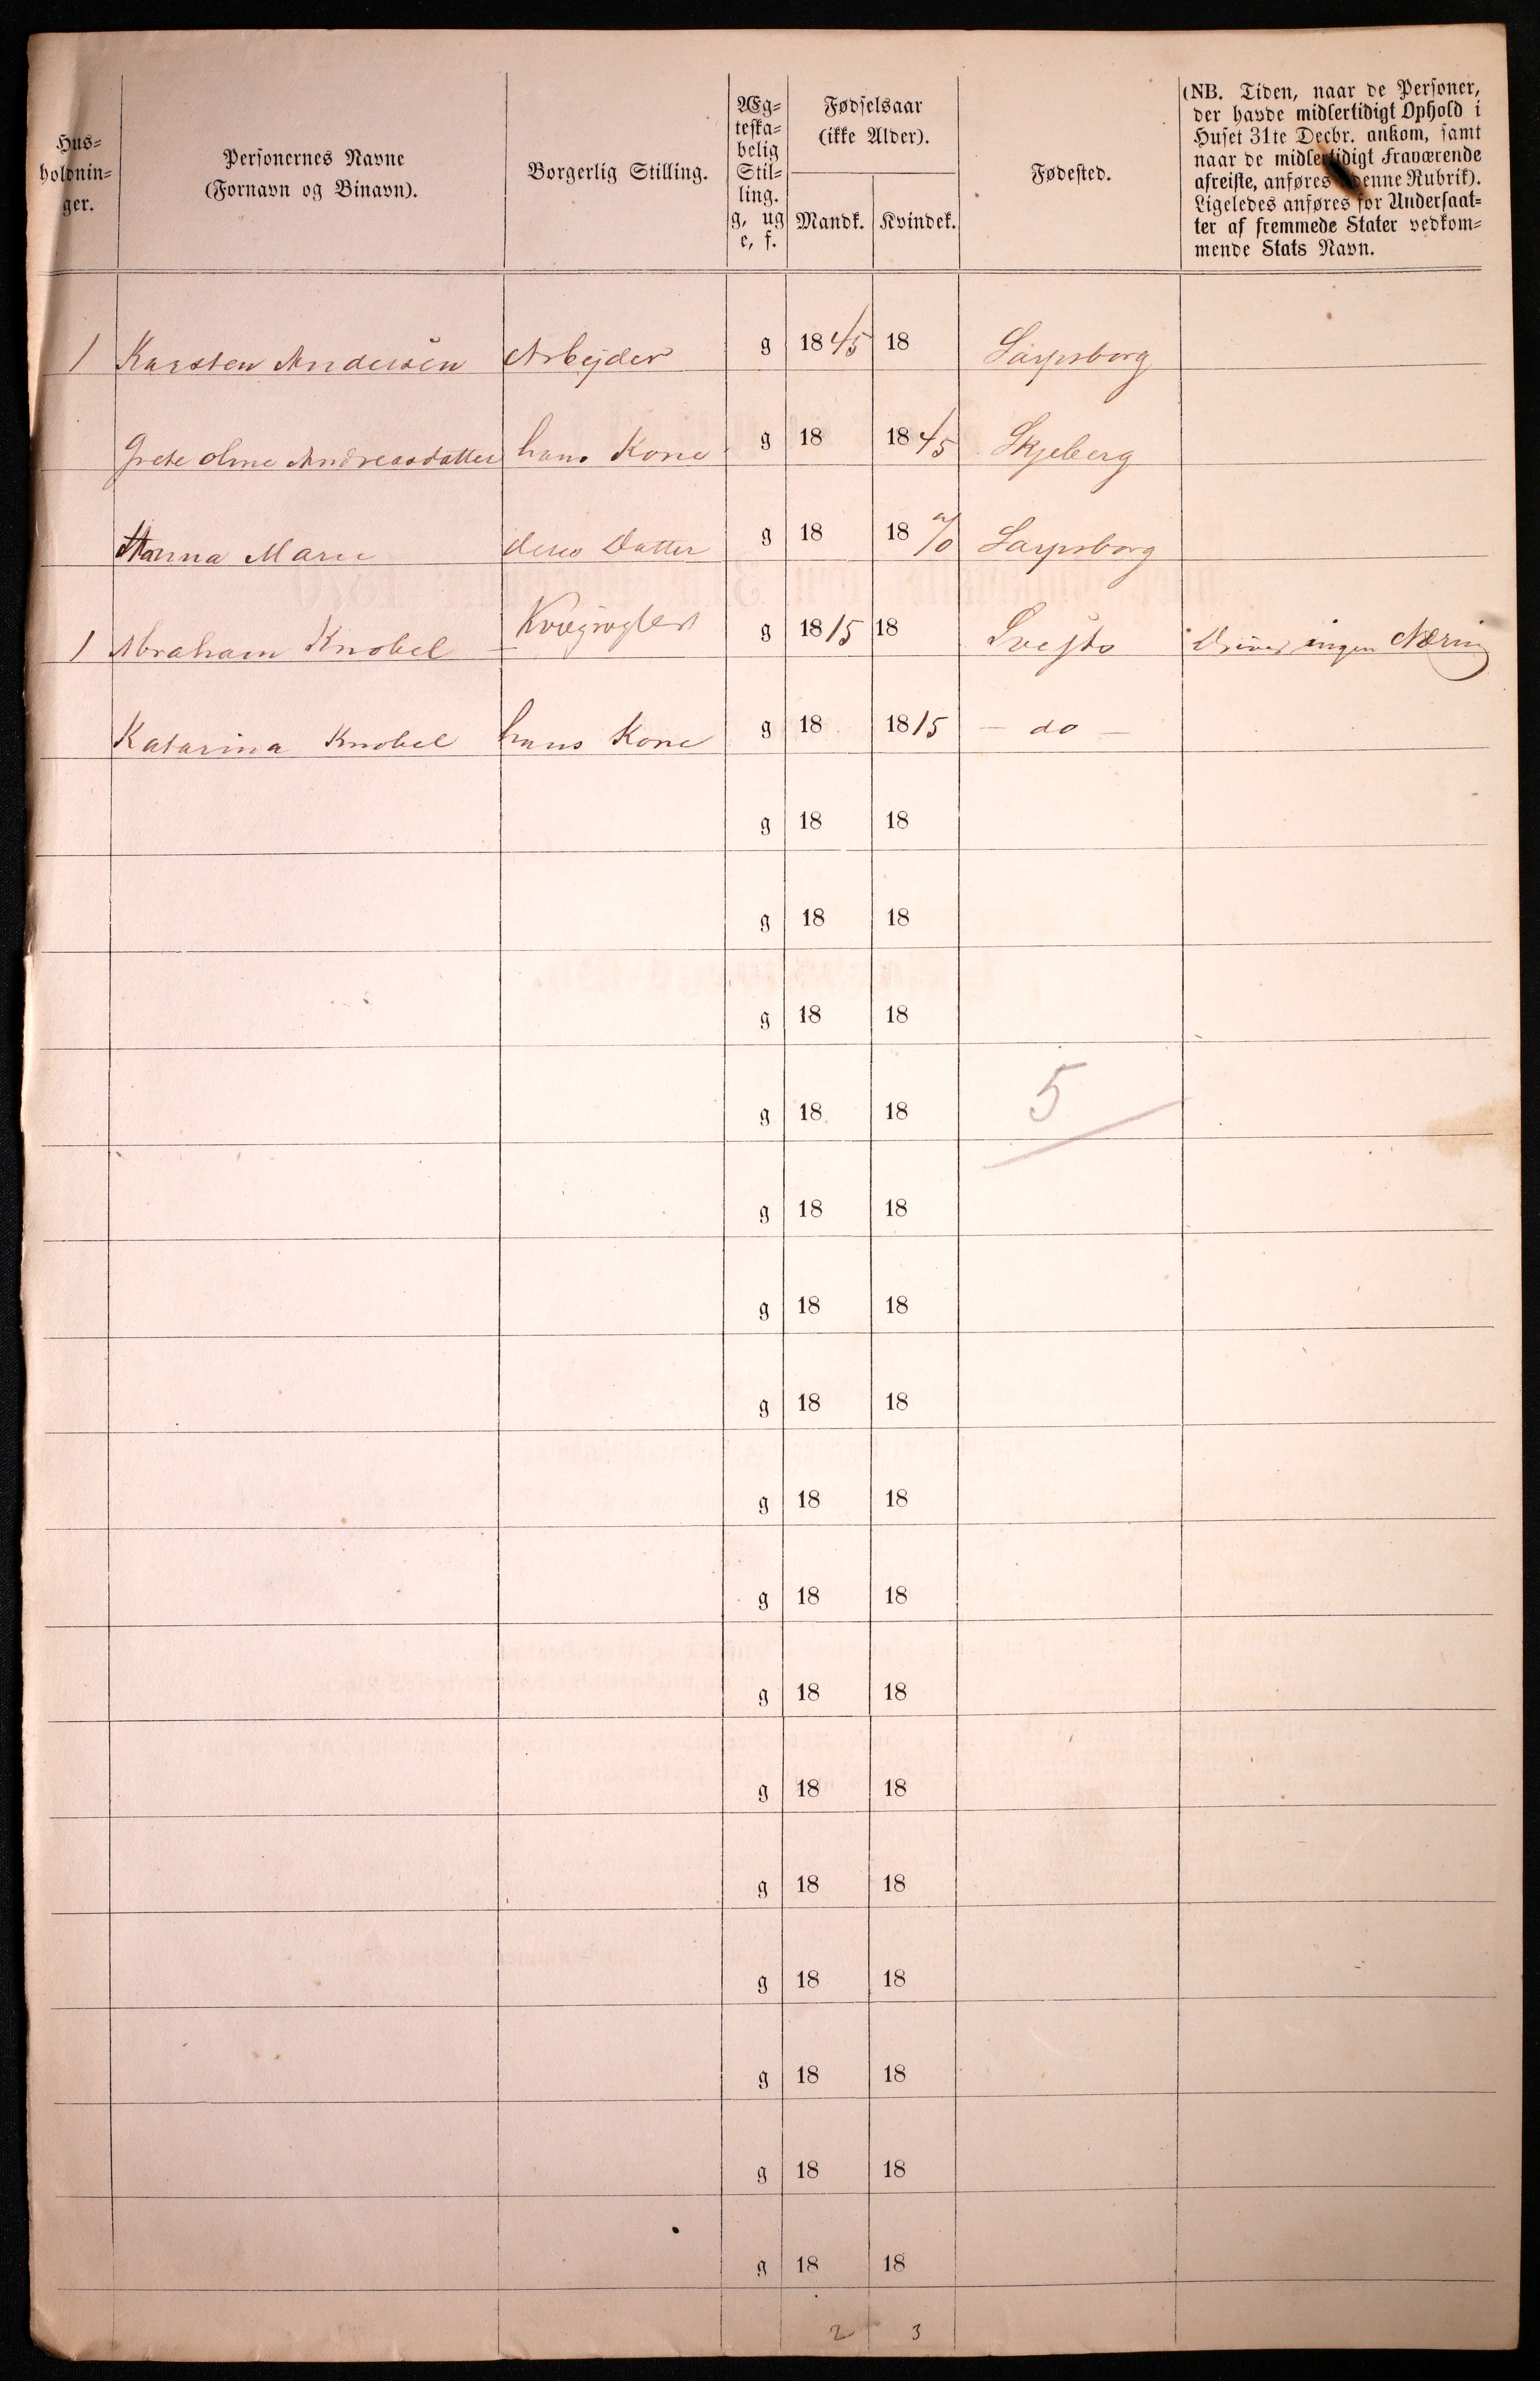 Hus-
holdnin-
ger.
Personernes Navne
(Fornavn og Binavn).
Borgerlig Stilling.
Æg-
teska-
belig
Stil-
ling.
g, ug
e, f.
Fødselsaar
(ikke Alder).
Mandk. Kvindek.
Fødested.
(NB. Tiden, naar de Personer,
der havde midlertidigt Ophold i
Huset 31te Decbr. ankom, samt
naar de midlertidigt Fraværende
afreiste, anføres denne Rubrik).
Ligeledes anføres for Undersaat-
ter af fremmede Stater vedkom-
mende Stats Navn.
1 Karsten Andersen Arbejder g 1845 18 Sarpsborg
Grete Andreasdatter hans Kone g 18 1845 Skjeberg
Hanna Marie Datter g 18 18 Sarpsborg
1 Abraham Knobel g 1815 18 ingen Næring
Katarina Knobel hans Kone g 18 1815 – do –
g 18 18
g 18 18
g 18 18
g 18 18 5
g 18 18
g 18 18
g 18 18
g 18 18
g 18 18
g 18 18
g 18 18
g 18 18
g 18 18
g 18 18
g 18 18
g 18 18
2 3